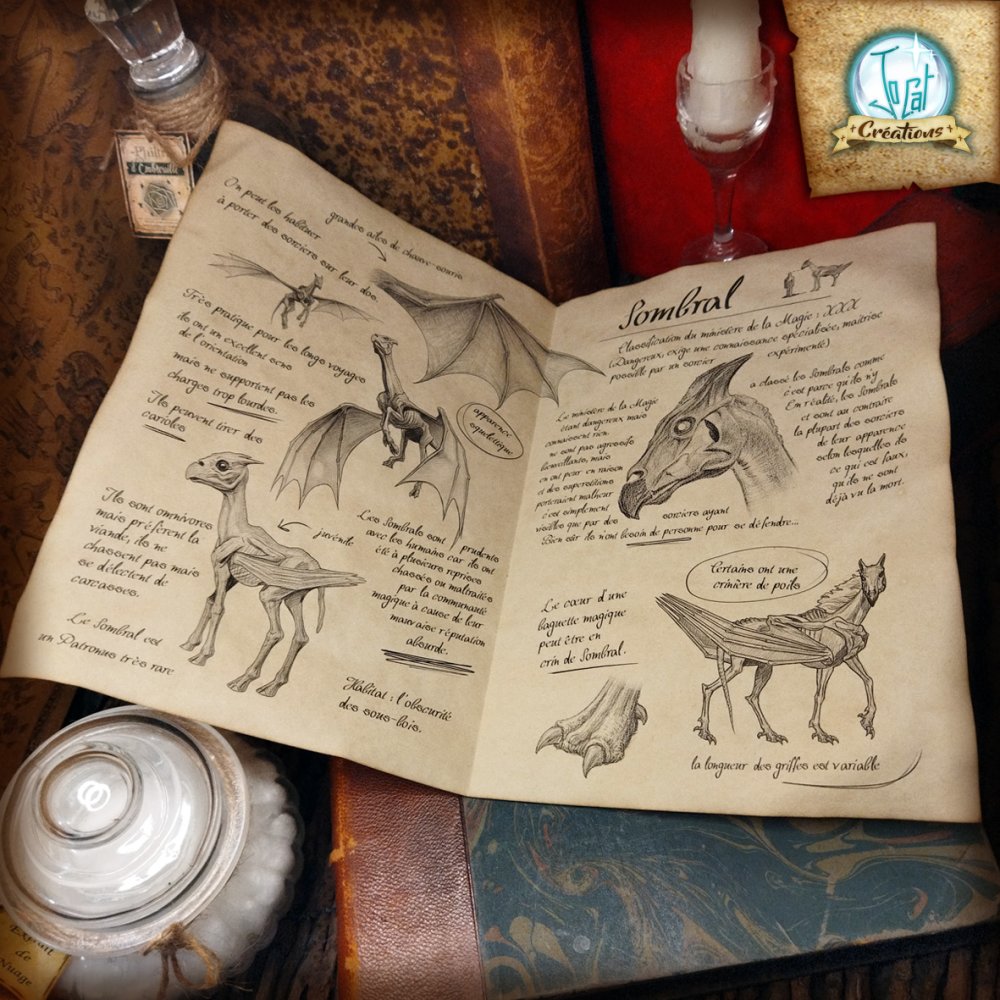 JoCat
Créations
Philtre
d'Embrouille
On peut les habituer
à porter des sorciers sur leur dos
grandes ailes de chauve-souris
Très pratique pour les longs voyages
ils ont un excellent sens
de l'orientation
mais ne supportent pas les
charges trop lourdes.
Ils peuvent tirer des
carioles
apparence
squelettique
Ils sont omnivores
mais préfèrent la
viande, ils ne
chassent pas mais
se délectent de
carcasses.
juvénile
Les Sombrals sont prudents
avec les humains car ils ont
été à plusieurs reprises
chassés ou maltraités
par la communauté
magique à cause de leur
mauvaise réputation
absurde.
Le Sombral est
un Patronus très rare
Habitat : l'obscurité
des sous-bois.
Sombral
Classification du ministère de la Magie : XXX
(Dangereux, exige une connaissance spécialisée, maîtrise
possible par un sorcier expérimenté)
Le ministère de la Magie a classé les Sombrals comme
étant dangereux mais c'est parce qu'ils n'y
connaissent rien. En réalité, les Sombrals
ne sont pas agressifs et sont au contraire
bienveillants, mais la plupart des sorciers
en ont peur en raison de leur apparence
et des superstitions selon lesquelles ils
porteraient malheur ce qui est faux,
c'est simplement qu'ils ne sont
visibles que par des sorciers ayant déjà vu la mort.
Bien sûr ils n'ont besoin de personne pour se défendre...
Certains ont une
crinière de poils
Le cœur d'une
baguette magique
peut être en
crin de Sombral.
la longueur des griffes est variable
Extrait
de
Nuage